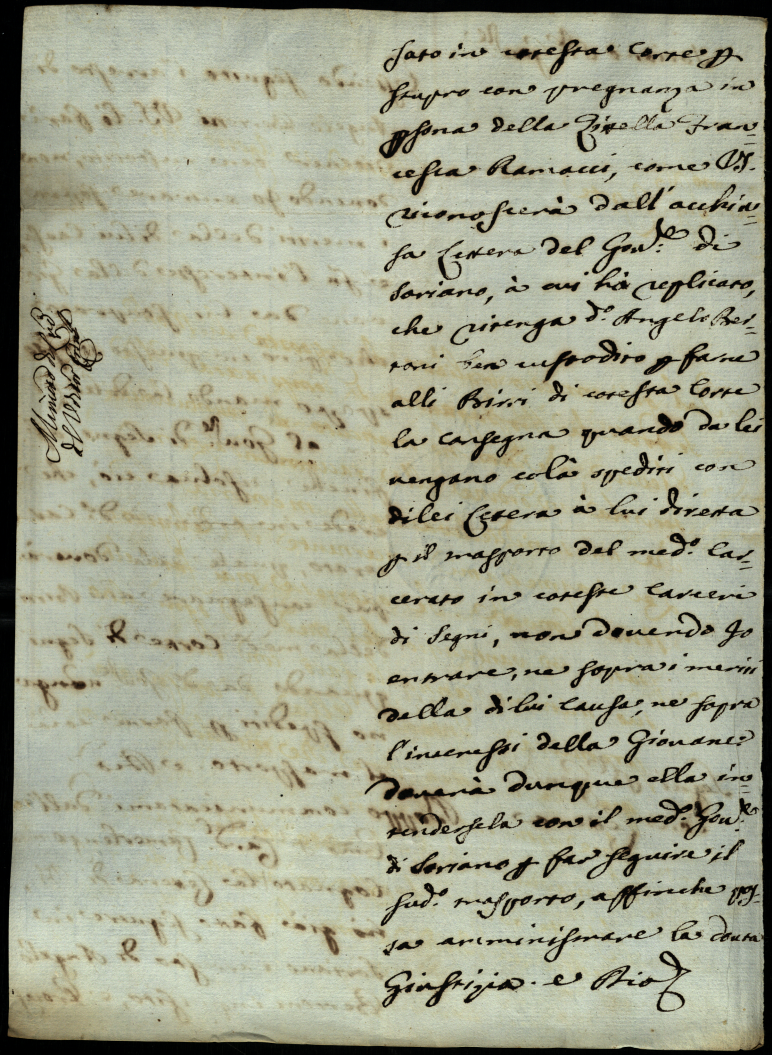 sato in cotesta Corte p
stupro con pregnanza in
psona della Zittella Fran=
cesca Ramacci, come VS.
riconoscerà dall' acchiu=
sa Lettera del Gov.re di
Soriano, à cui hò replicato,
che ritenga d.o Angelo Ber=
toni ben custodito p farne
alli Birri di cotesta Corte
la consegna quando da lei
vengano colà spediti con
di lei Lettera à lui diretta
p il trasporto del med.o Car=
cerato in coteste Carceri
di Segni, non dovendo Io
entrare, ne sopra i meriti
della di lui Causa, ne sopra
l'interessi della Giovane:
doverà dunque ella in=
tendersela con il med.o Gov.re
di Soriano p far seguire il
sud.o trasporto, affinche pos=
sa amministrare la dovuta
Giustizia. e